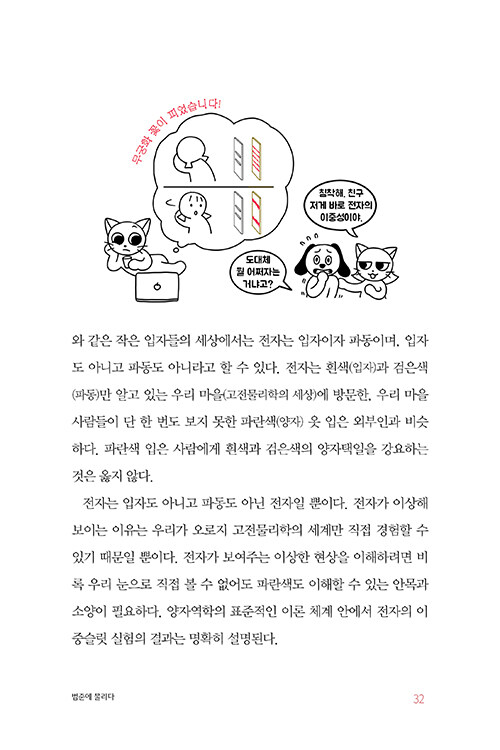 무궁화 꽃이 피었습니다!
침착해, 친구
저게 바로 전자의
이중성이야.
도대체
뭘 어쩌자는
거냐고?
와 같은 작은 입자들의 세상에서는 전자는 입자이자 파동이며, 입자
도 아니고 파동도 아니라고 할 수 있다. 전자는 흰색(입자)과 검은색
(파동)만 알고 있는 우리 마을(고전물리학의 세상)에 방문한, 우리 마을
사람들이 단 한 번도 보지 못한 파란색(양자) 옷 입은 외부인과 비슷
하다. 파란색 입은 사람에게 흰색과 검은색의 양자택일을 강요하는
것은 옳지 않다.
전자는 입자도 아니고 파동도 아닌 전자일 뿐이다. 전자가 이상해
보이는 이유는 우리가 오로지 고전물리학의 세계만 직접 경험할 수
있기 때문일 뿐이다. 전자가 보여주는 이상한 현상을 이해하려면 비
록 우리 눈으로 직접 볼 수 없어도 파란색도 이해할 수 있는 안목과
소양이 필요하다. 양자역학의 표준적인 이론 체계 안에서 전자의 이
중슬릿 실험의 결과는 명확히 설명된다.
범준에 물리다
32